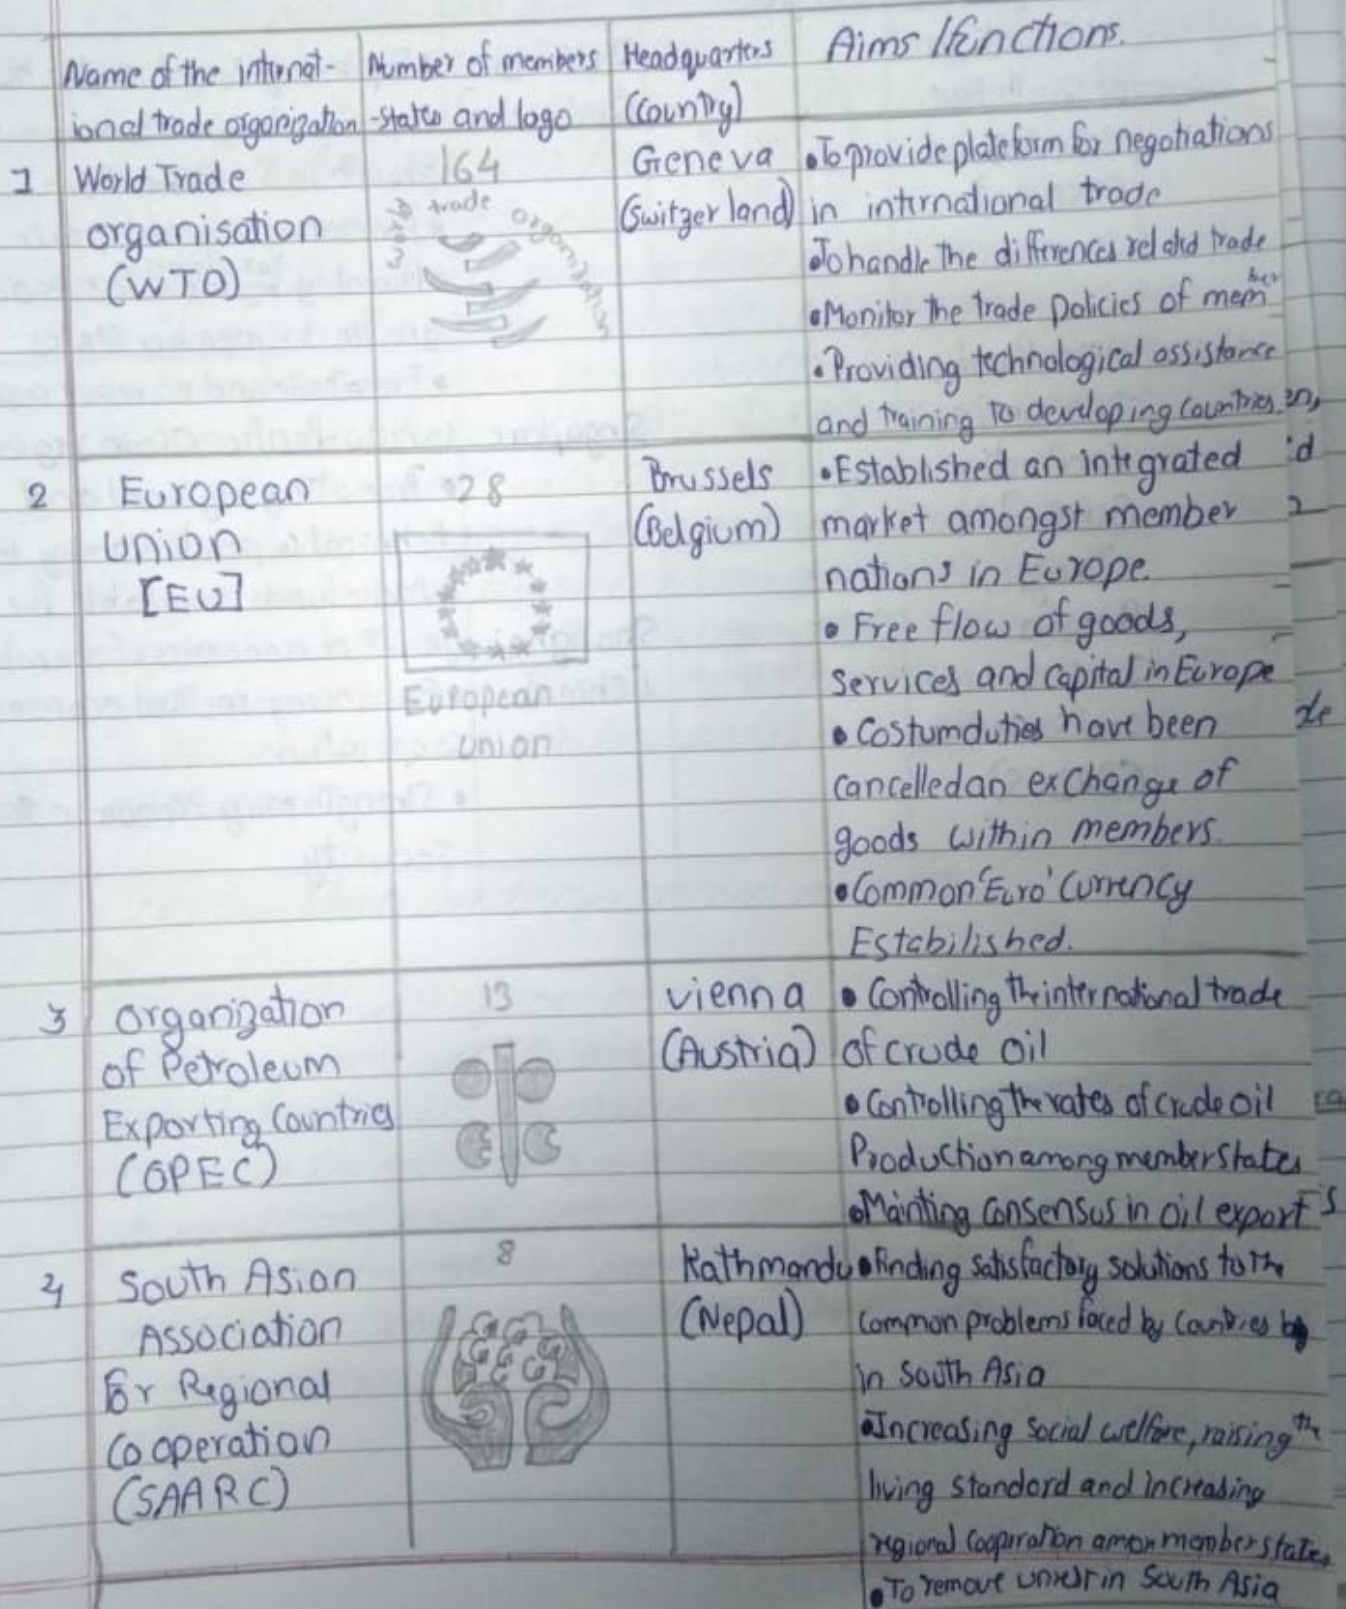 Name of the internat-
ional trade organization
Number of members
-states and logo
Headquarters
(Country)
Aims /functions.
1
World Trade
organisation
(WTO)
164
world trade organization
Geneva
(Switzerland)
•To provide plateform for negotiations
in international trade
•To handle the differences related trade
•Monitor the trade policies of member
•Providing technological assistance
and training to developing countries.
2
European
Union
[EU]
28
European
union
Brussels
(Belgium)
•Established an integrated
market amongst member
nations in Europe.
• Free flow of goods,
services and capital in Europe
• Costumduties have been
cancelledan exchange of
goods within members.
•Common 'Euro' Currency
Estabilished.
3
organization
of Petroleum
Exporting Countries
(OPEC)
13
vienna
(Austria)
• Controlling the international trade
of crude oil
• Controlling the rates of crude oil
Production among member states
•Mainting consensus in oil export
4
South Asian
Association
for Regional
Cooperation
(SAARC)
8
Kathmandu
(Nepal)
•finding satisfactory solutions to the
common problems faced by countries
in South Asia
•Increasing social welfare, raising the
living standard and increasing
regional cooperation amon member states
•To remove unrest in South Asia